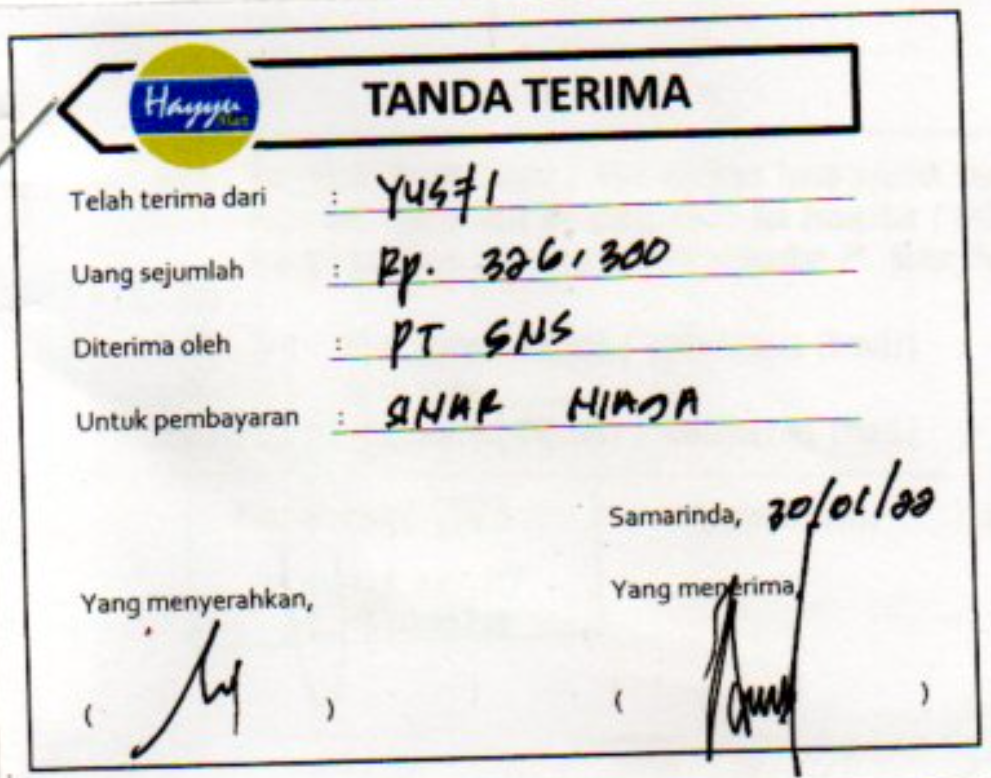 Hayyu Mart
TANDA TERIMA
Telah terima dari : Yusfi
Uang sejumlah : Rp. 326,300
Diterima oleh : PT SNS
Untuk pembayaran : SINAR NIAGA
Samarinda, 30/01/22
Yang menyerahkan,
Yang menerima,
( )
( )